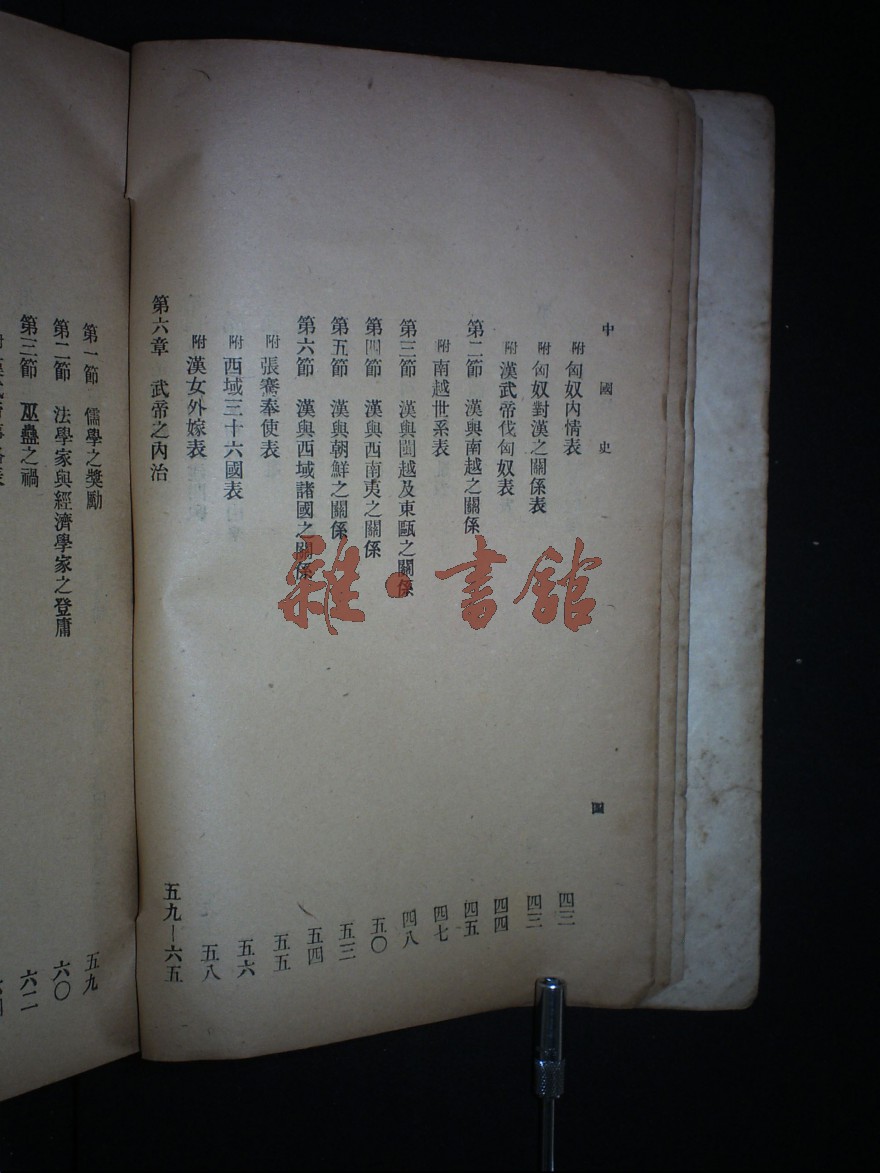 中國史
四
附 匈奴內情表 四二
附 匈奴對漢之關係表 四三
附 漢武帝伐匈奴表 四四
第二節 漢與南越之關係 四五
附 南越世系表 四七
第三節 漢與閩越及東甌之關係 四八
第四節 漢與西南夷之關係 五〇
第五節 漢與朝鮮之關係 五三
第六節 漢與西域諸國之關係 五四
附 張騫奉使表 五五
附 西域三十六國表 五六
附 漢女外嫁表 五八
第六章 武帝之內治 五九—六五
第一節 儒學之獎勵 五九
第二節 法學家與經濟學家之登庸 六〇
第三節 巫蠱之禍 六二
雜·書館